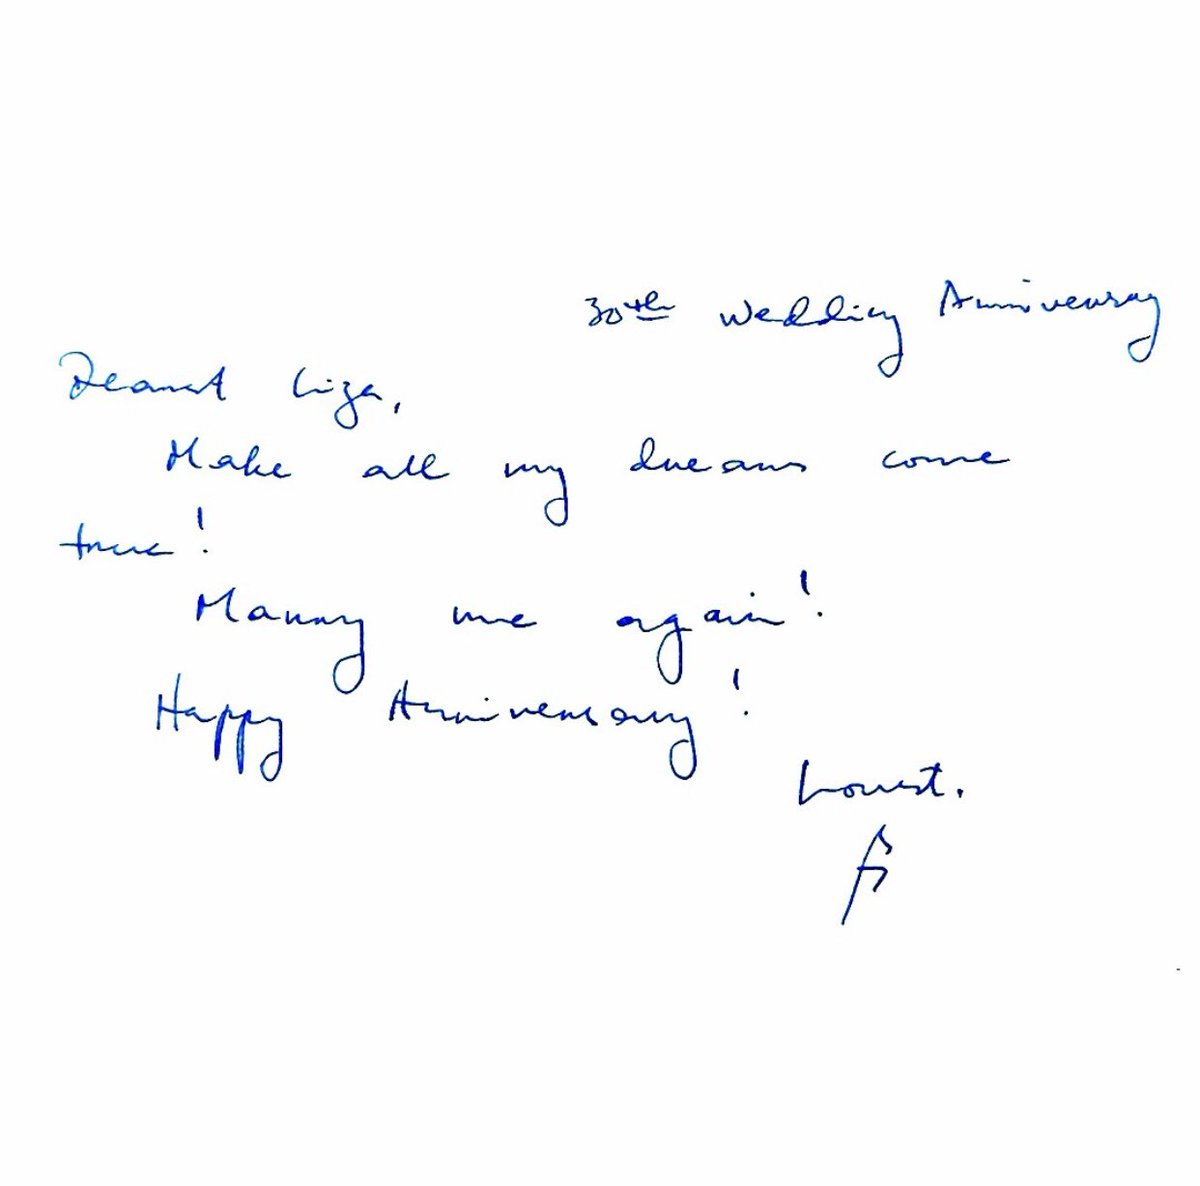 30th Wedding Anniversary
Dearest Liza,
Make all my dreams come
true!
Marry me again!
Happy Anniversary!